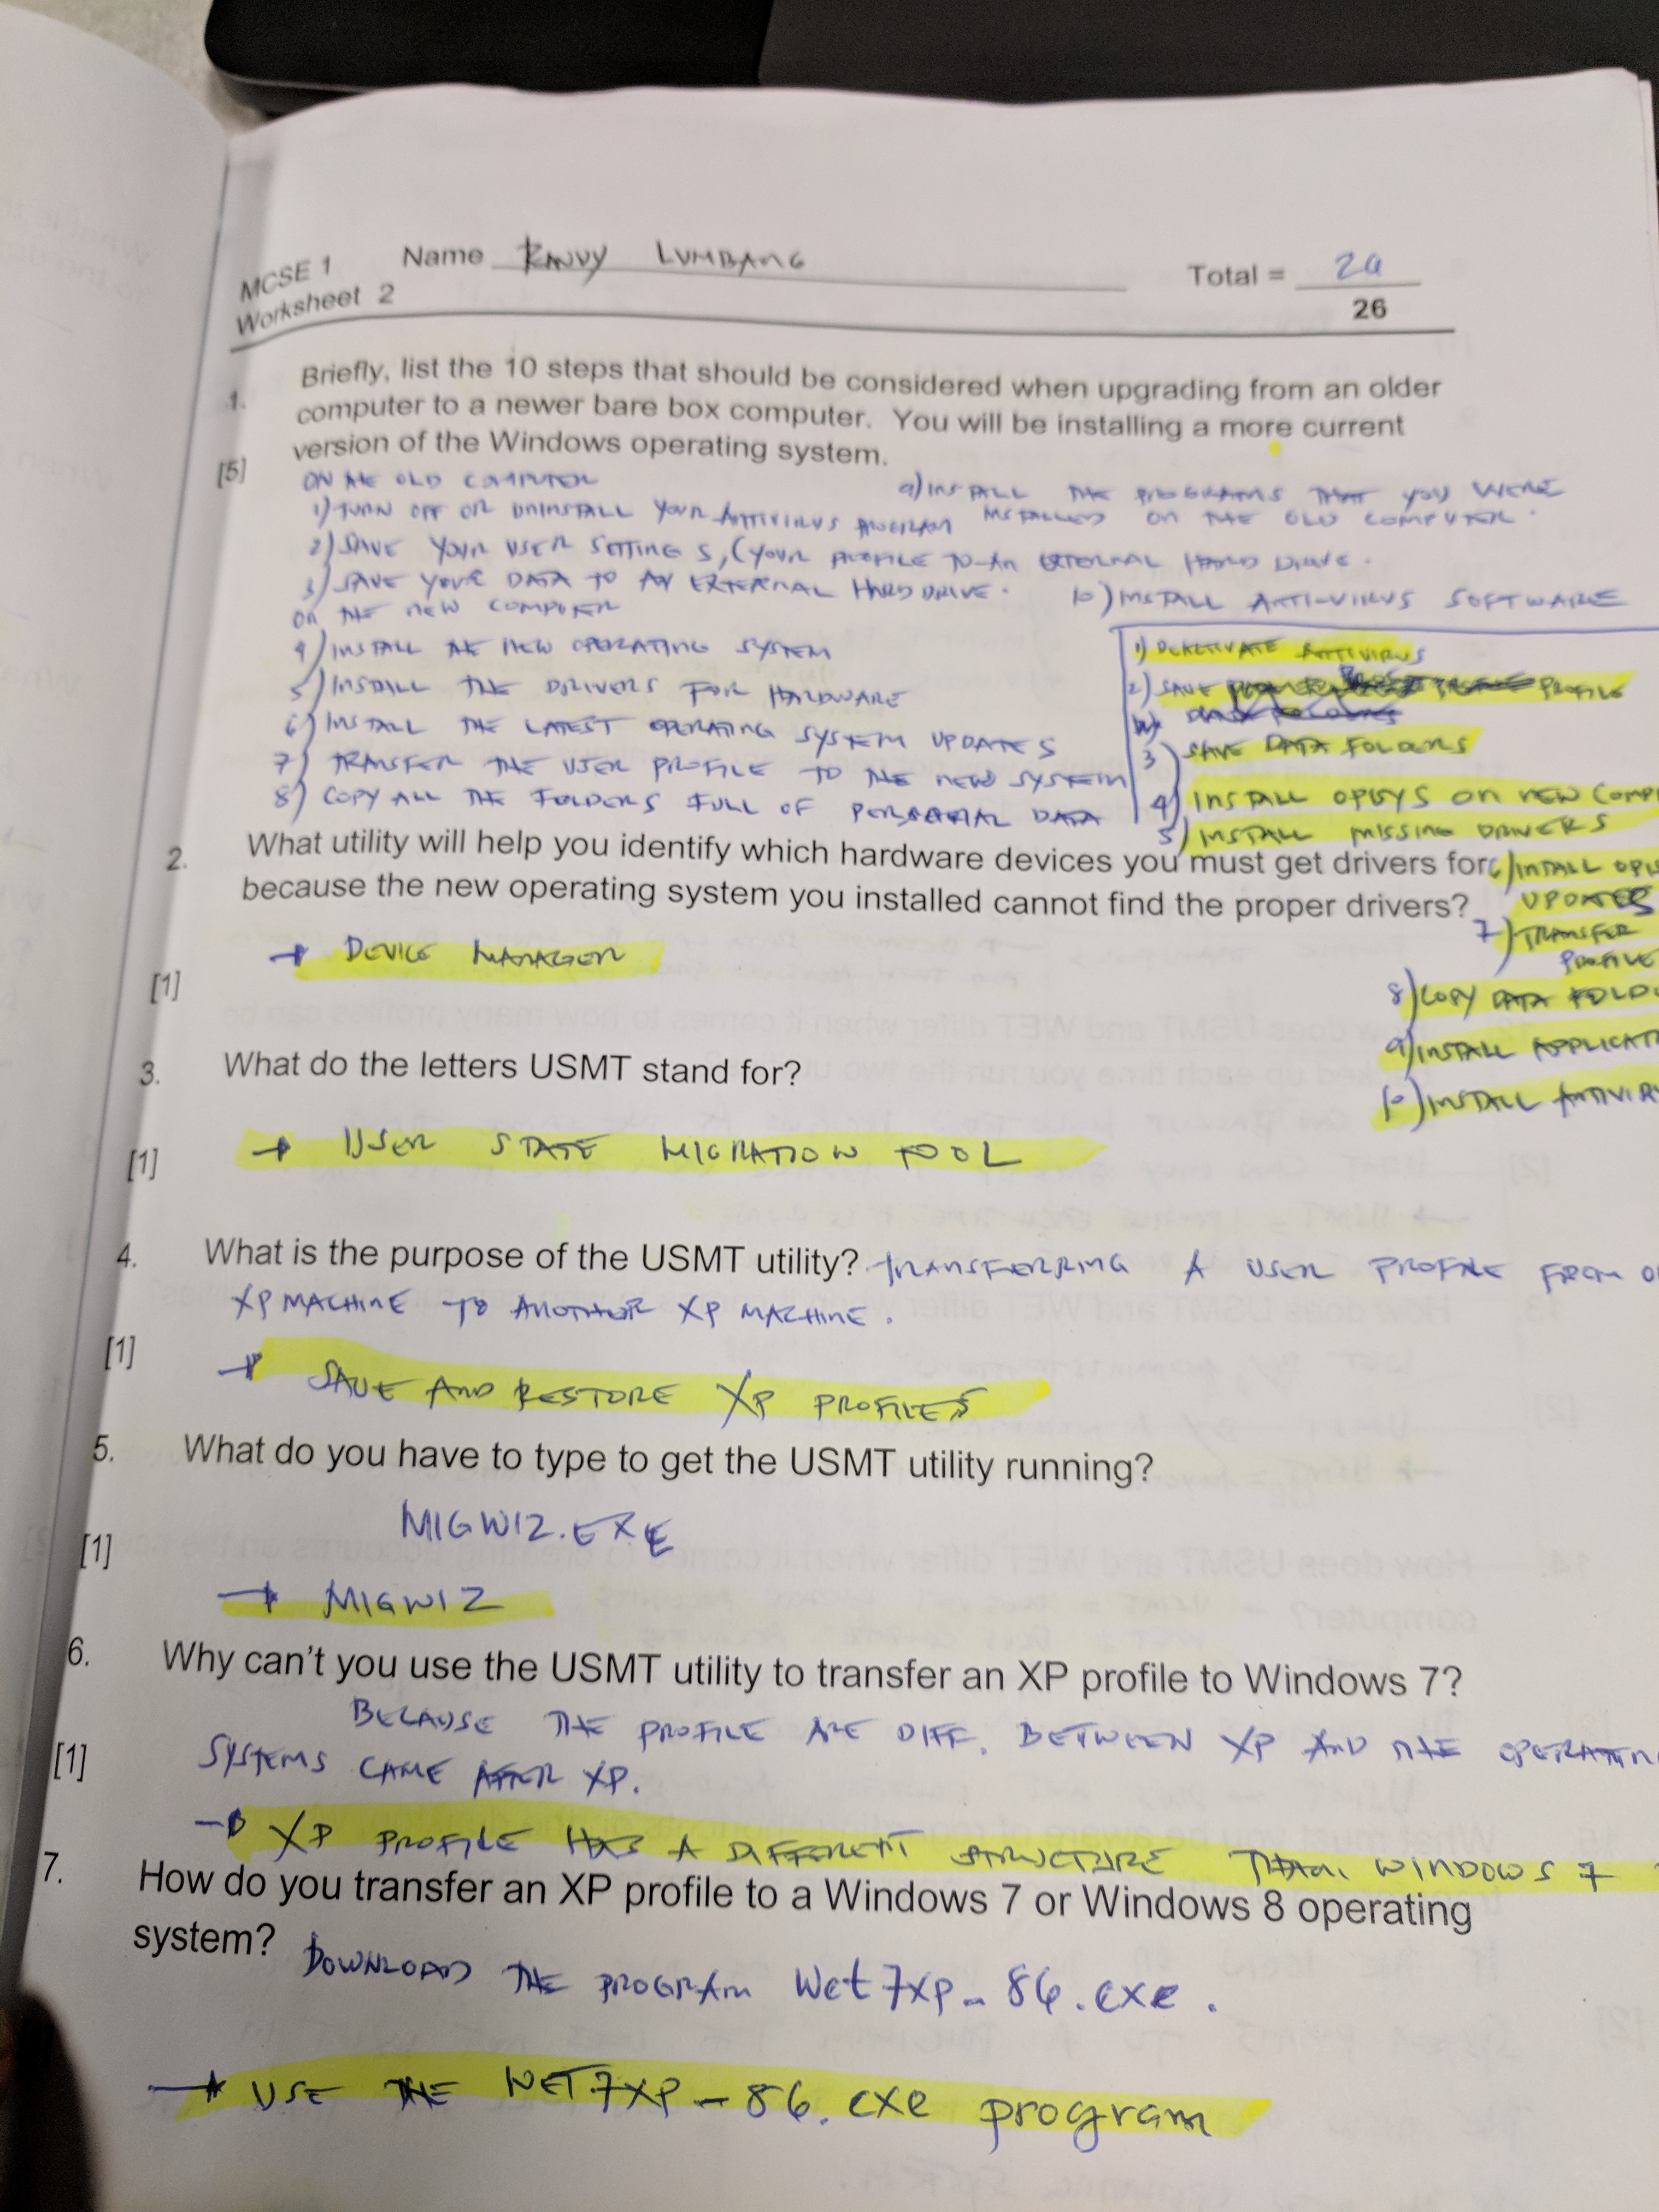 MCSE 1
Worksheet 2
Name LUMBANG
Total =
26
1. Briefly, list the 10 steps that should be considered when upgrading from an older
computer to a newer bare box computer. You will be installing a more current
version of the Windows operating system.
[5]
ON THE OLD COMPUTER
1) TURN OFF OR UNINSTALL YOUR ANTIVIRUS PROGRAM
2) SAVE YOUR USER SETTINGS, (YOUR PROFILE TO AN EXTERNAL HARD DRIVE.
3) SAVE YOUR DATA TO AN EXTERNAL HARD DRIVE.
ON THE NEW COMPUTER
4) INSTALL THE NEW OPERATING SYSTEM
5) INSTALL THE DRIVERS FOR HARDWARE
6) INSTALL THE LATEST OPERATING SYSTEM UPDATES
7) TRANSFER THE USER PROFILE TO THE NEW SYSTEM
8) COPY ALL THE FOLDERS FULL OF PERSONAL DATA
9) INSTALL THE PROGRAMS THAT YOU WERE
INSTALLED ON THE OLD COMPUTER.
10) INSTALL ANTI-VIRUS SOFTWARE
1) DEACTIVATE ANTIVIRUS
2) SAVE PROFILE
3) SAVE DATA FOLDERS
4) INSTALL OPSYS ON NEW COMP
5) INSTALL MISSING DRIVERS
6) INSTALL
UPDATES
7) TRANSFER
PROFILE
8) COPY DATA
9) INSTALL
10) INSTALL
2. What utility will help you identify which hardware devices you must get drivers for
because the new operating system you installed cannot find the proper drivers?
→ DEVICE MANAGER
[1]
3. What do the letters USMT stand for?
→ USER STATE MIGRATION TOOL
[1]
4. What is the purpose of the USMT utility? TRANSFERRING A USER PROFILE FROM
XP MACHINE TO ANOTHER XP MACHINE.
[1]
→ SAVE AND RESTORE XP PROFILES
5. What do you have to type to get the USMT utility running?
MIGWIZ.EXE
[1]
→ MIGWIZ
6. Why can't you use the USMT utility to transfer an XP profile to Windows 7?
BECAUSE THE PROFILE ARE DIFF. BETWEEN XP AND THE
[1]
SYSTEMS CAME AFTER XP.
→ XP PROFILE HAS A DIFFERENT STRUCTURE THAN WINDOWS 7
7. How do you transfer an XP profile to a Windows 7 or Windows 8 operating
system?
DOWNLOAD THE PROGRAM Wet7xp-86.exe.
→ USE THE WET7XP-86.exe program